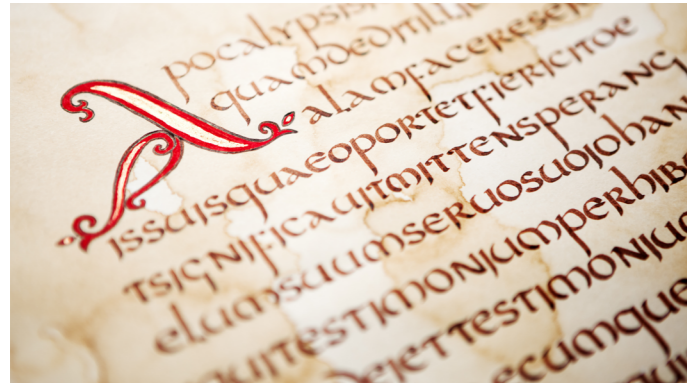 Apocalypsis
quamdeditilli
alamfacerese
issuisquaeoportetfiericitoe
tsignificauitmittensperang
elumsuumseruosuoiohan
quitestimoniumperhib
deiettestimoniu
ecumque